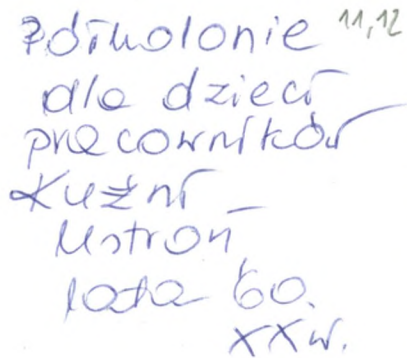 Półkolonie 11,12
dla dzieci
pracowników
Kuźni
Ustroń
lata 60.
XX w.